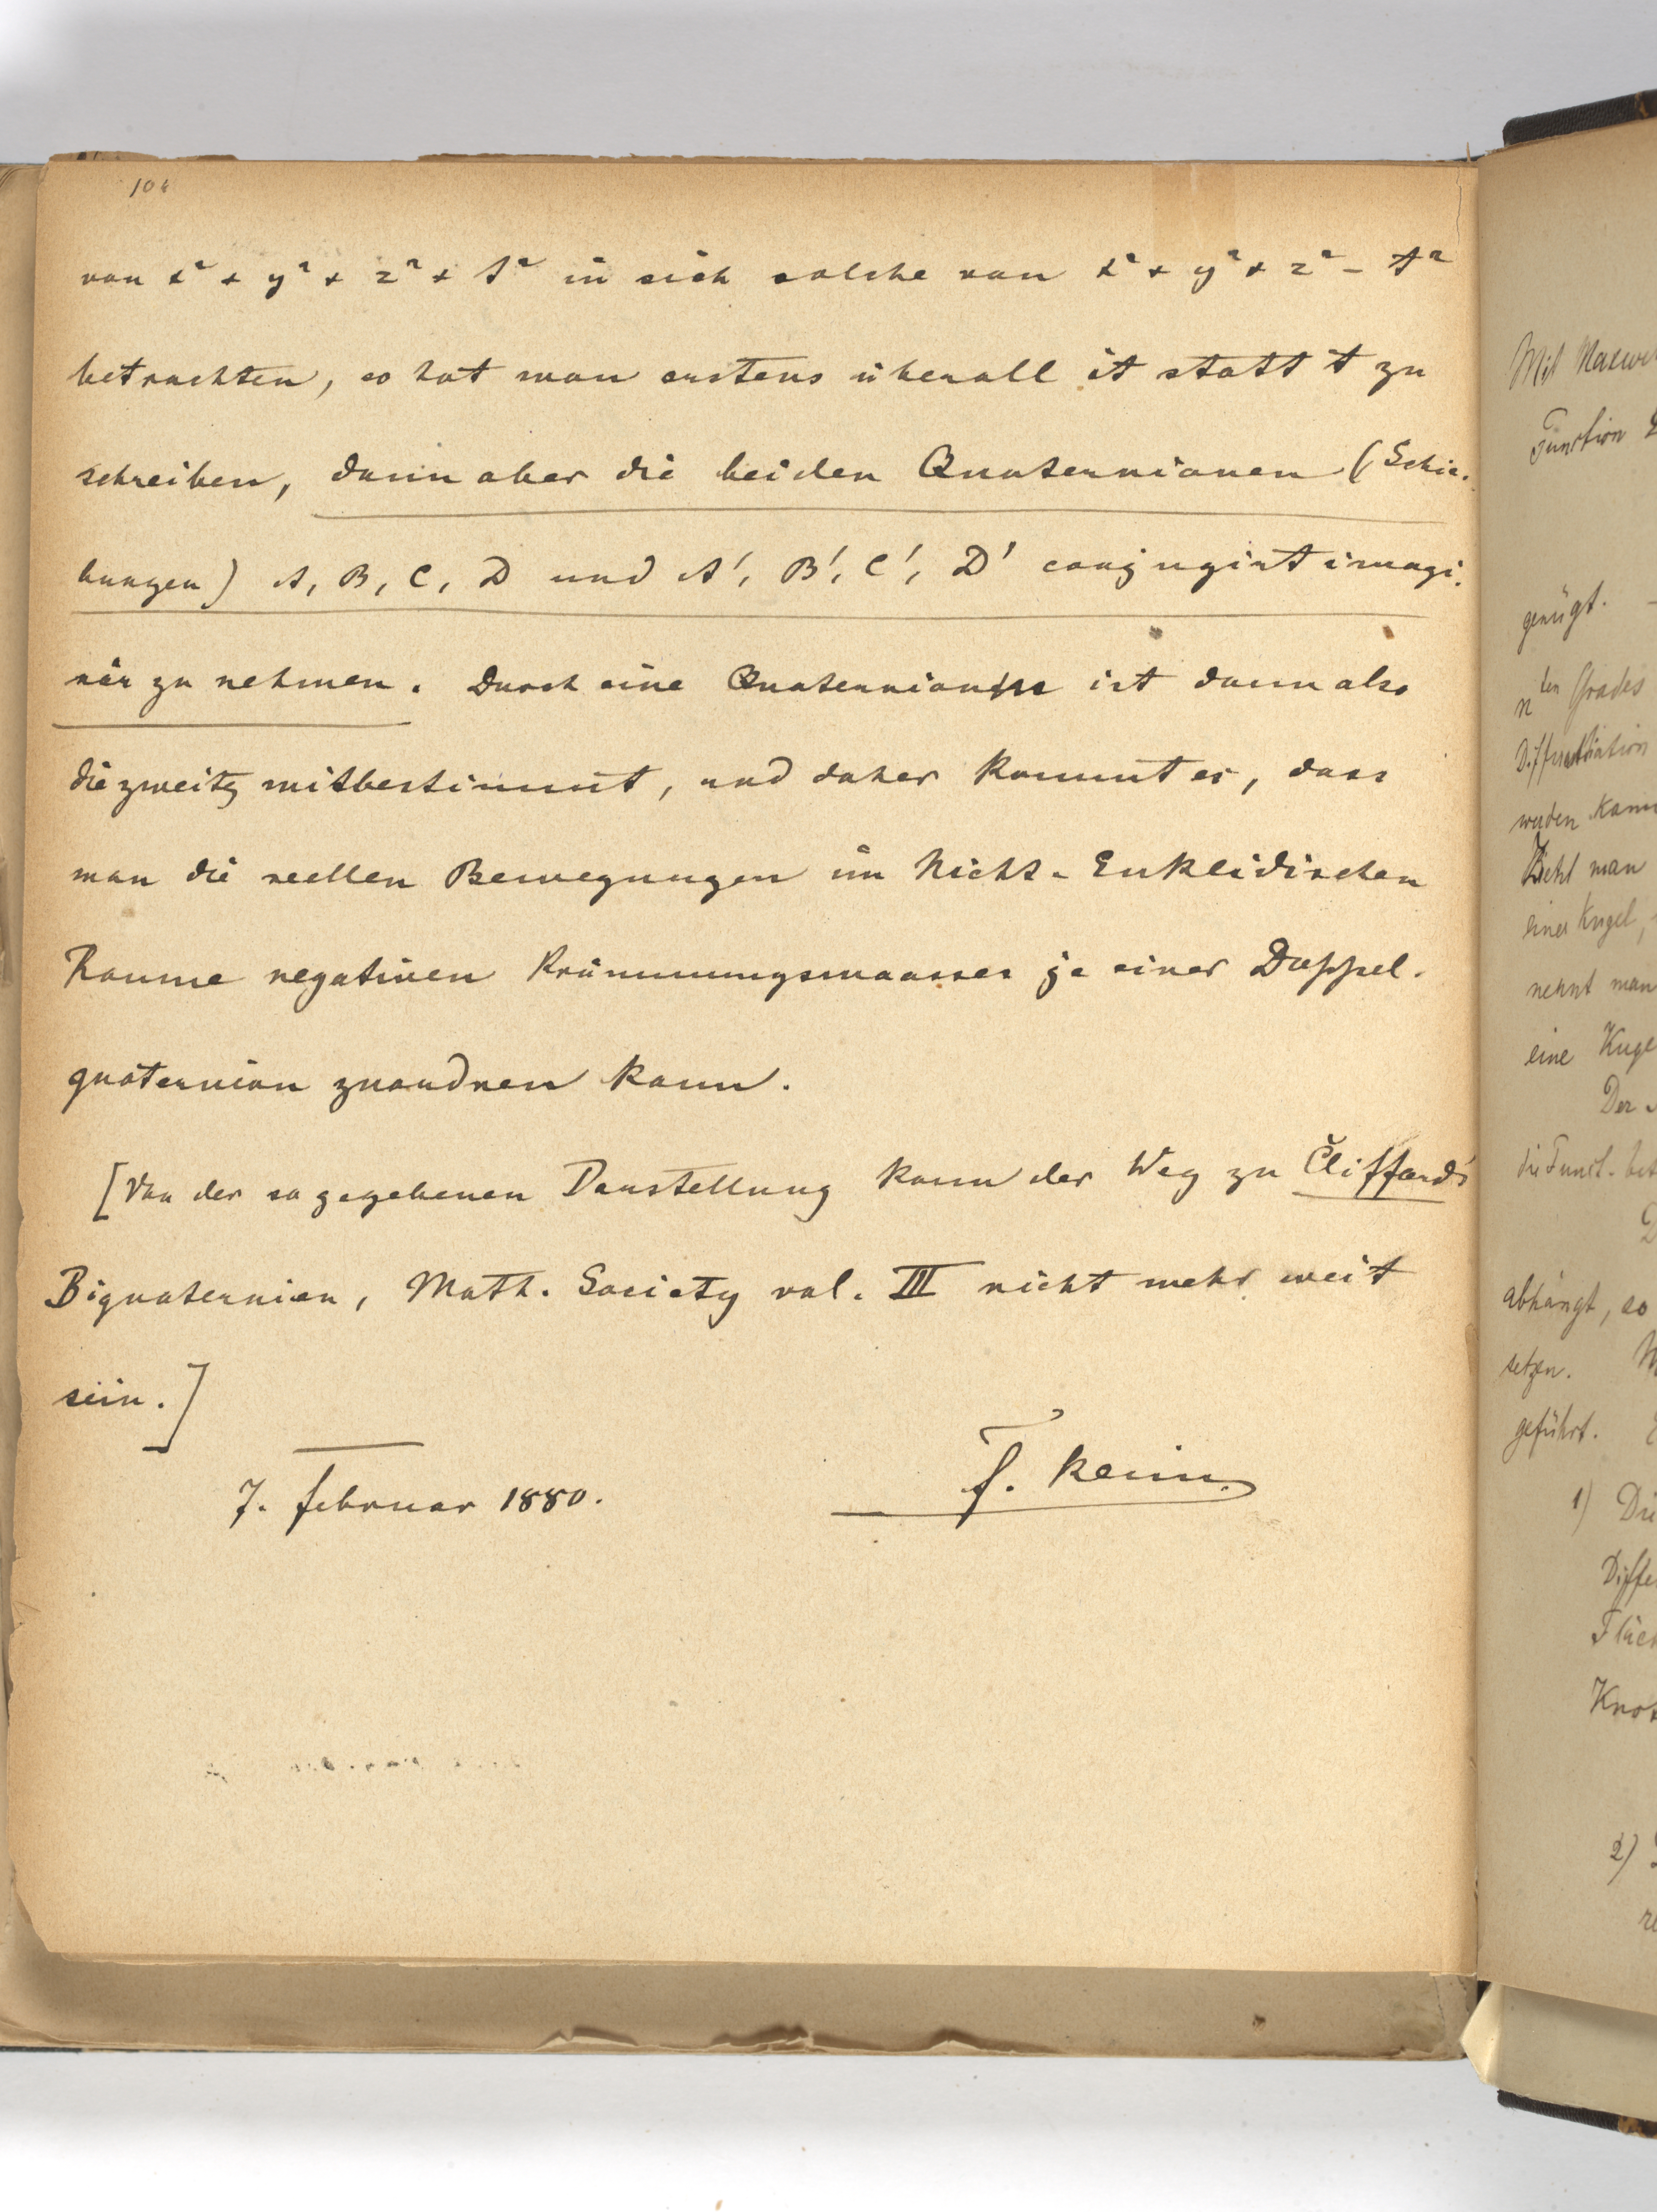 104
von x² + y² + z² + t² in sich solche von x² + y² + z² - t²
betrachten, so hat man erstens überall it statt t zu
schreiben, dann aber die beiden Quaternionen (Schie-
bungen) A, B, C, D und A', B', C', D' conjugirt imagi-
när zu nehmen. Durch eine Quaternion ist dann also
die zweite mitbestimmt, und daher kommt es, dass
man die reellen Bewegungen im Nicht-Euklidischen
Raume negativen Krümmungsmaasses je einer Doppel-
quaternion zuordnen kann.
[Von der so gegebenen Darstellung kann der Weg zu Clifford's
Biquaternion, Math. Society vol. III nicht mehr weit
sein.]
7. Februar 1880.
F. Klein.
Mit
Function
genügt. -
nten Grades
werden kann
Zieht man
einer Kugel,
nennt man
eine Kuge
Der
die Funct.
abhängt, so
setzen.
geführt.
1) Die
Diffe
Fläch
Knot
2)